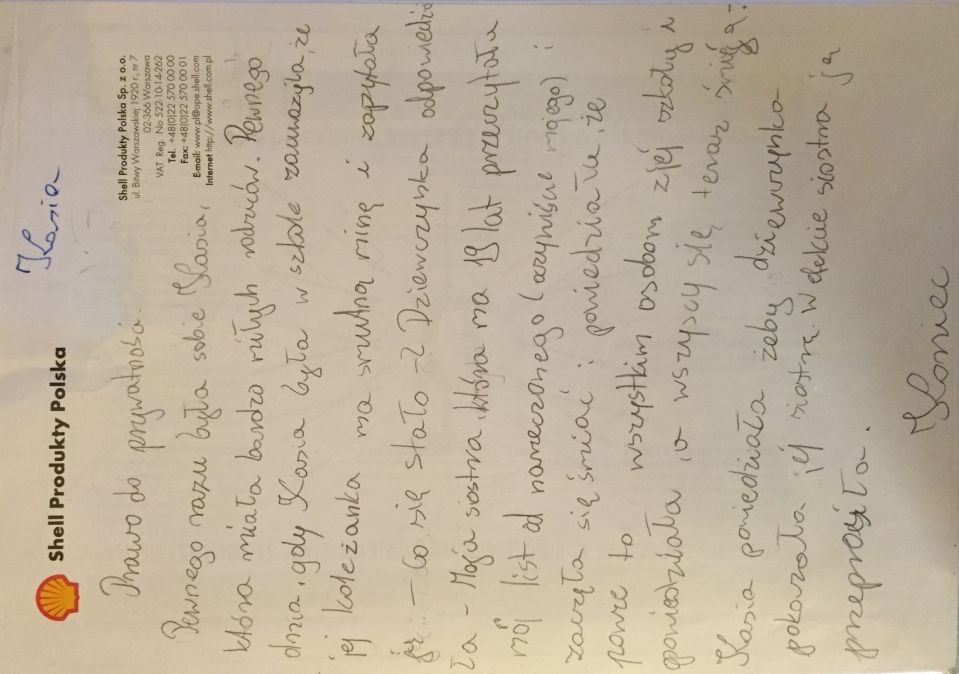 Shell Produkty Polska
Kasia
Shell Produkty Polska Sp. z o.o.
ul. Bitwy Warszawskiej 1920 r., nr 7
02-366 Warszawa
VAT Reg. No 522-10-14-262
Tel. +48(0)22 570 00 00
Fax: +48(0)22 570 00 01
E-mail: www.pl@ope.shell.com
Internet http://www.shell.com.pl
Prawo do prywatności.
Pewnego razu była sobie Kasia,
która miała bardzo miłych rodziców. Pewnego
dnia, gdy Kasia była w szkole zauważyła, że
jej koleżanka ma smutną minę i zapytała
ją: - Co się stało -? Dziewczynka odpowiedzia
ła - Moja siostra która ma 19 lat przeczytała
mój list od narzeczonego (oczywiście mojego) i
zaczęła się śmiać i powiedziała, że
powie to wszystkim osobom z jej szkoły i
powiedziała, a wszyscy się teraz śmieją.
Kasia powiedziała żeby dziewczynka
pokazała jej siostrę w efekcie siostra ją
przeprosiła.
Koniec